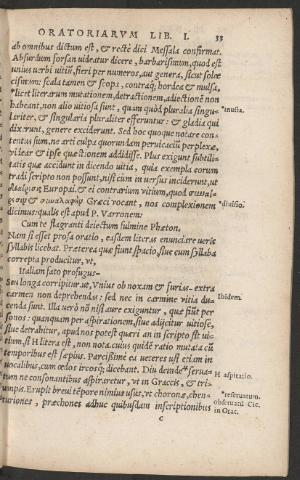 ORATORIARVM LIB. I. 33
ab omnibus dictum est, & rectè dici Messala confirmat.
Absurdum forsan videatur dicere, barbarismum, quod est
unius verbi vitiũ, fieri per numeros, aut genera, sicut solœ
cismum: scala tamen & scopa, contraq; hordea & mulsa,
licet literarum mutationem, detractionem, adiectionẽ non
habeant, non alio vitiosa sunt, quàm quòd pluralia singu-
lariter, & singularia pluraliter efferuntur: & gladia qui
dixerunt, genere exciderunt. Sed hoc quoque notare con-
tentus sum, ne arti culpa quorundam pervicaciũ perplexæ,
videar & ipse quæstionem addidisse. Plus exigunt subtili-
tatis quæ accidunt in dicendo vitia, quia exempla eorum
tradi scripto non possunt, nisi cum in versus inciderunt, ut
Europaï, & ei contrarium vitium, quod
& Græci vocant, nos complexionem
dicimus: qualis est apud P. Varronem:
Cum te flagranti deiectum fulmine Phæton.
Nam si esset prosa oratio, easdem literas enunciare veris
syllabis licebat. Præterea quæ fiunt spacio, siue cum syllaba
correpta producitur, vt,
Italiam fato profugus-
Seu longa corripitur ut, Vnius ob noxam & furias- extra
carmen non deprehendas: sed nec in carmine vitia du-
cenda sunt. Illa verò nõ nisi aure exiguntur, quæ fiũt per
sonos: quanquam per aspirationem, siue adijcitur vitiosè,
siue detrahitur, apud nos potest quæri an in scripto sit vi-
tium, si H litera est, non nota. cuius quidẽ ratio mutata cũ
temporibus est sæpius. Parcissimè ea veteres usi etiam in
vocalibus, cum œdos ircosq; dicebant. Diu deinde serua-
tum ne consonantibus aspiraretur, vt in Graccis, & triu-
mpis. Erupit brevi tẽpore nimius usus, vt choronæ, chen-
turiones, præchones adhuc quibusdam inscriptionibus
C
*mulsa.
*diuisio.
Ibidem.
H aspiratio.